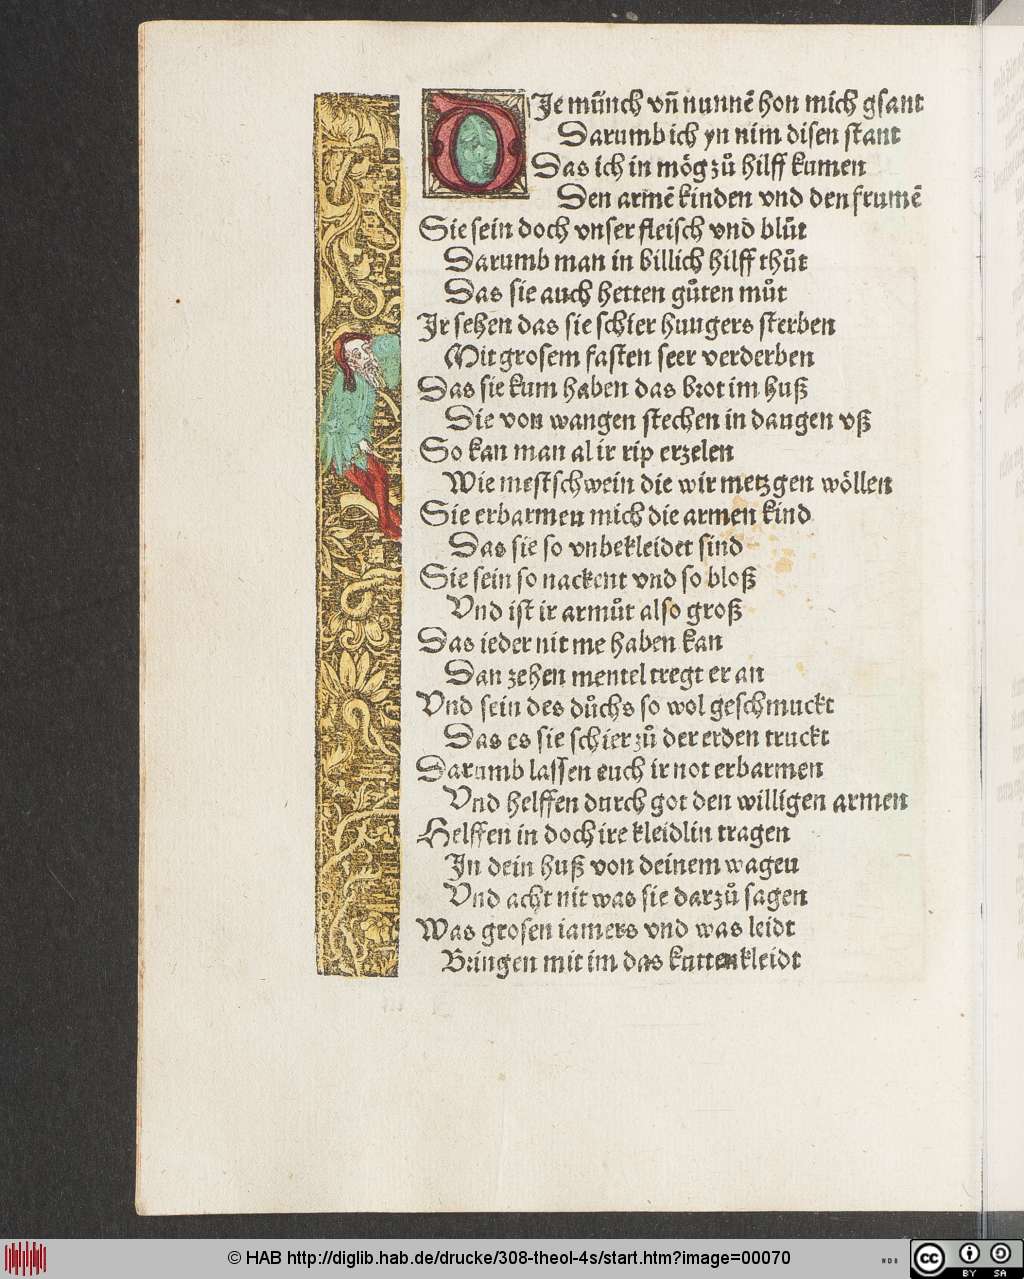 DJe mu̇nch vñ nunnē hon mich gsant
Darumb ich yn nim disen stant
Das ich in mög zů hilff kumen
Den armē kinden vnd den frumē
Sie sein doch vnser fleisch vnd blůt
Darumb man in billich hilff thůt
Das sie auch hetten gůten můt
Jr sehen das sie schier hungers sterben
Mit grosem fasten seer verderben
Das sie kum haben das brot im huß
Die von wangen stechen in daugen vß
So kan man al ir rip erzelen
Wie mestschwein die wir metzgen wöllen
Sie erbarmen mich die armen kind
Das sie so vnbekleidet sind
Sie sein so nackent vnd so bloß
Vnd ist ir armůt also groß
Das ieder nit me haben kan
Dan zehen mentel tregt er an
Vnd sein des důchs so wol geschmuckt
Das es sie schier zů der erden truckt
Darumb lassen euch ir not erbarmen
Vnd helffen durch got den willigen armen
Helffen in doch ire kleidlin tragen
In dein huß von deinem wagen
Vnd acht nit was sie darzů sagen
Was grosen iamers vnd was leidt
Bringen mit im das kuttenkleidt
© HAB http://diglib.hab.de/drucke/308-theol-4s/start.htm?image=00070
WDB
cc
BY SA